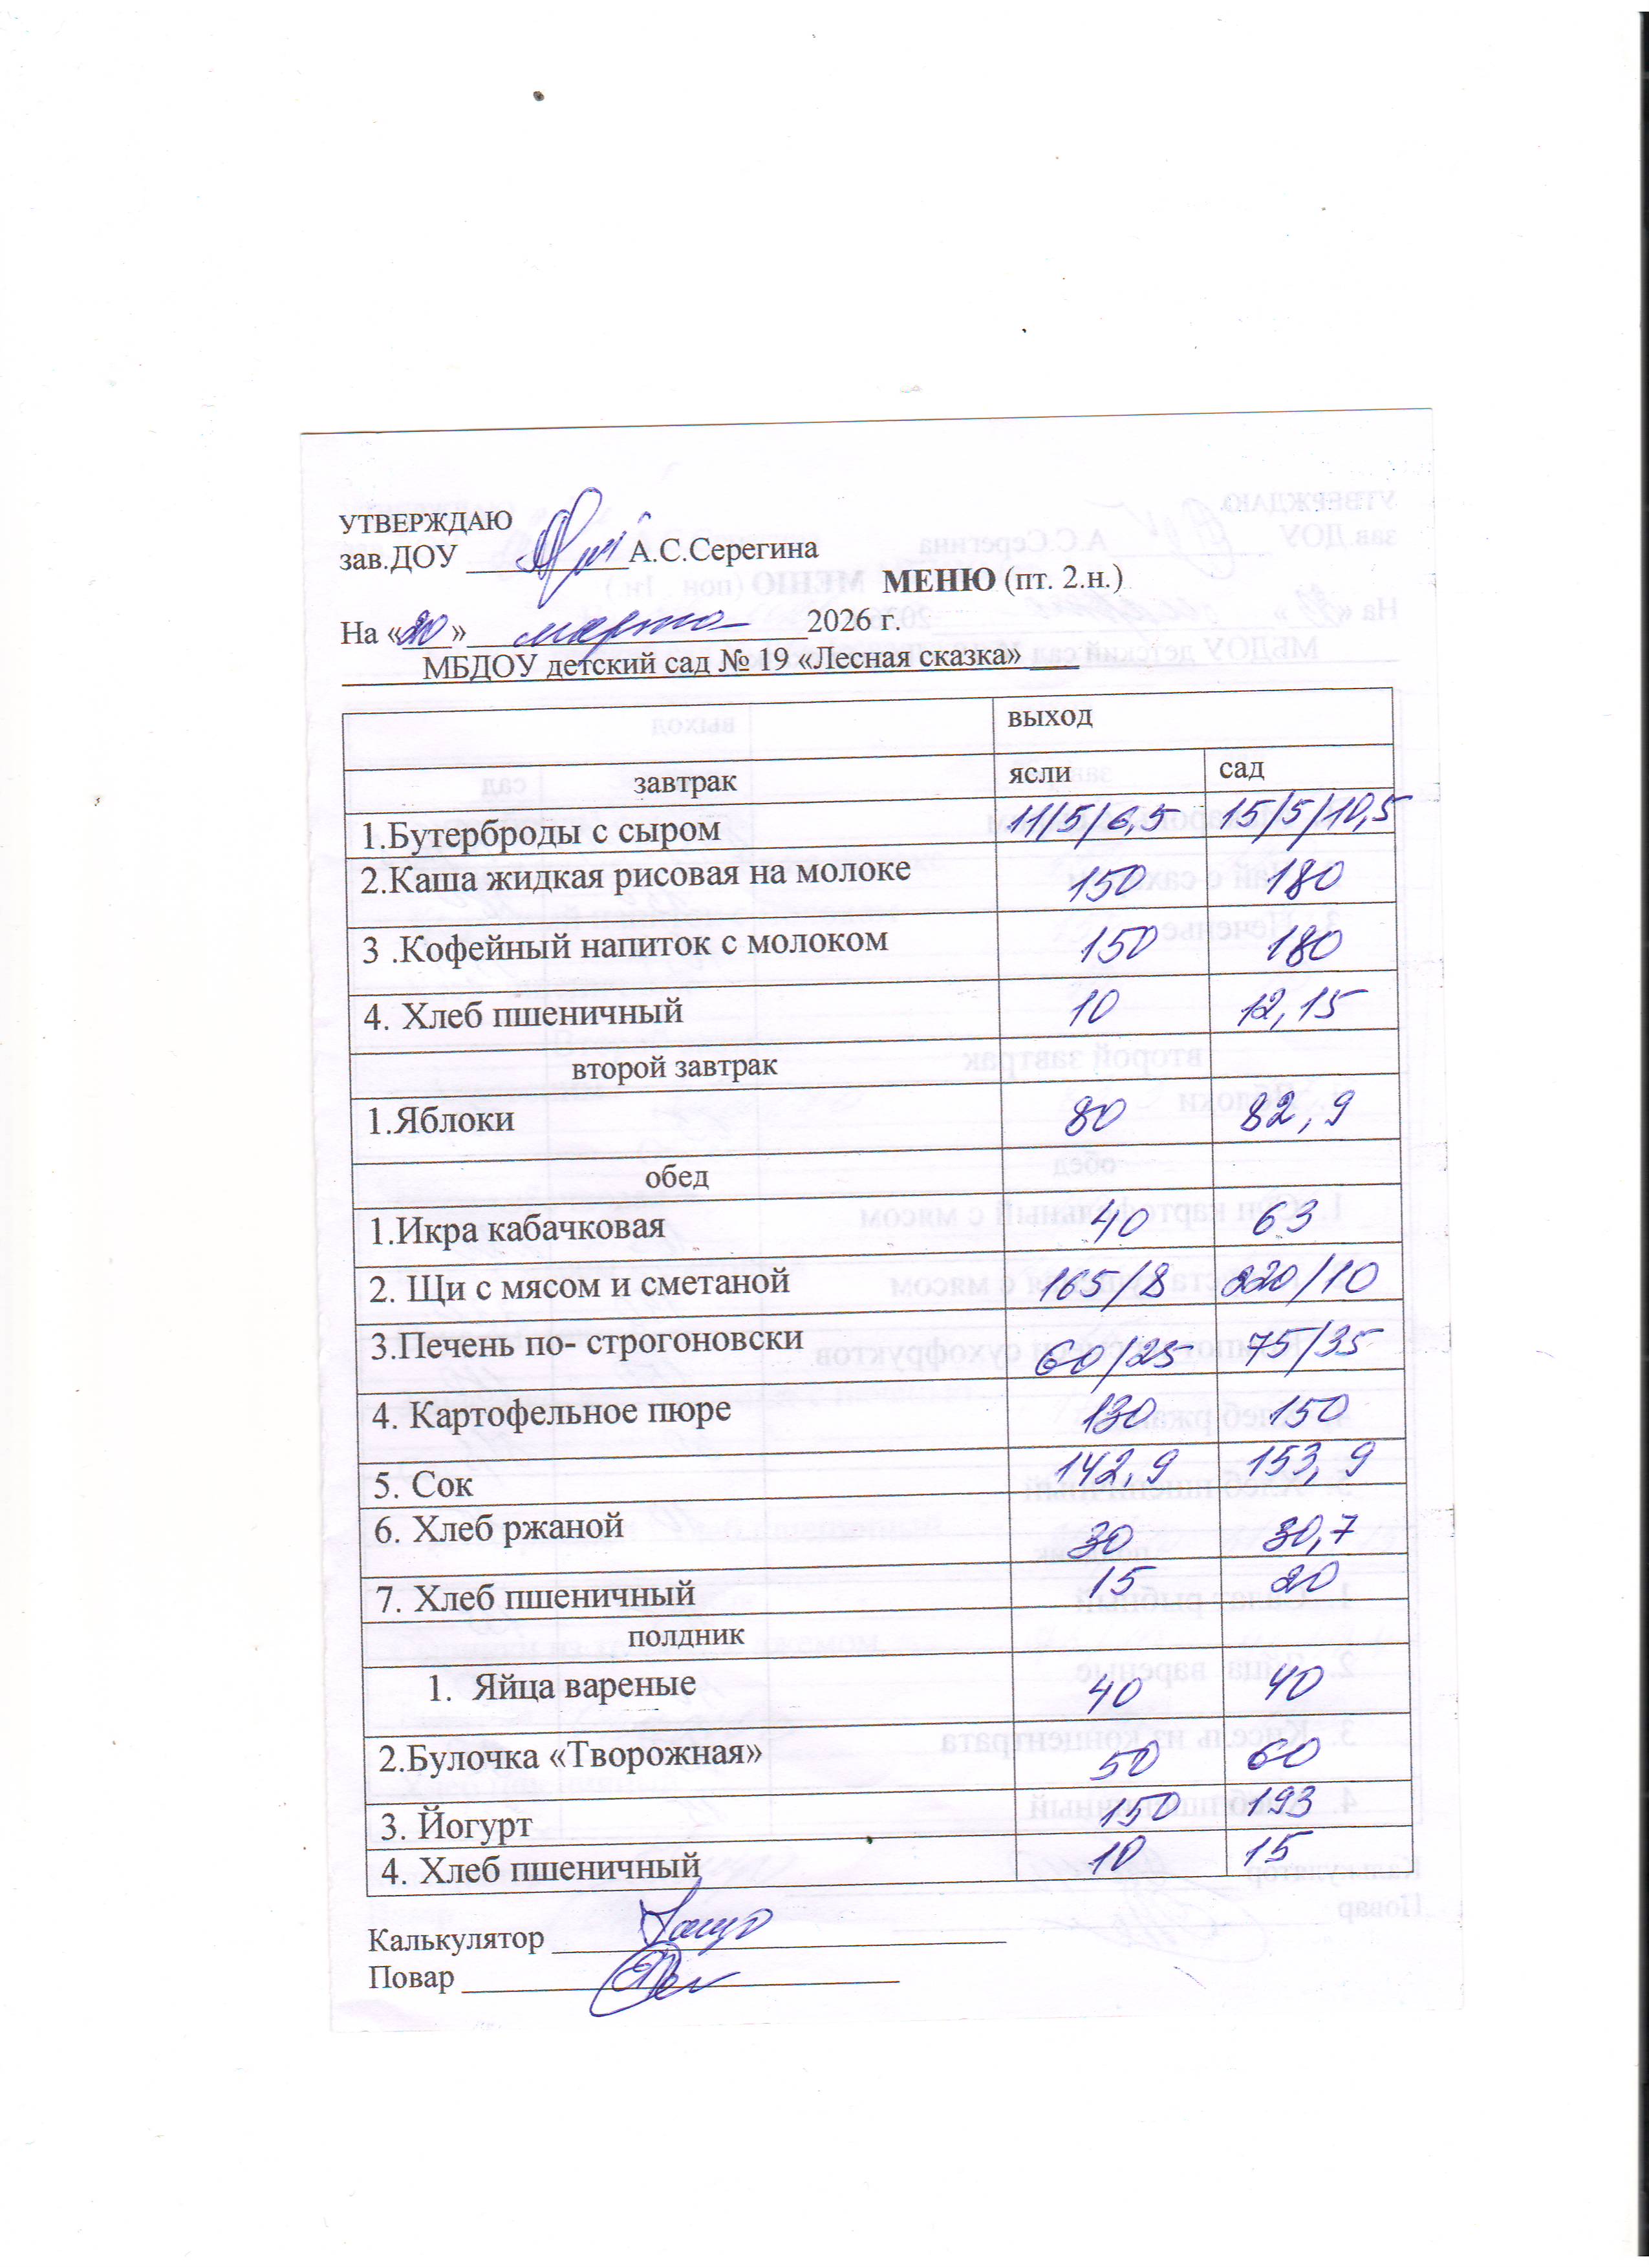 УТВЕРЖДАЮ
зав.ДОУ ____________А.С.Серегина
МЕНЮ (пт. 2.н.)
На «20» марта 2026 г.
МБДОУ детский сад № 19 «Лесная сказка»
выход
завтрак ясли сад
1.Бутерброды с сыром 11/5/6,5 15/5/10,5
2.Каша жидкая рисовая на молоке 150 180
3 .Кофейный напиток с молоком 150 180
4. Хлеб пшеничный 10 12,15
второй завтрак
1.Яблоки 80 82,9
обед
1.Икра кабачковая 40 63
2. Щи с мясом и сметаной 165/8 220/10
3.Печень по- строгоновски 60/25 75/35
4. Картофельное пюре 130 150
5. Сок 142,9 153,9
6. Хлеб ржаной 30 30,7
7. Хлеб пшеничный 15 20
полдник
1. Яйца вареные 40 40
2.Булочка «Творожная» 50 60
3. Йогурт 150 193
4. Хлеб пшеничный 10 15
Калькулятор
Повар